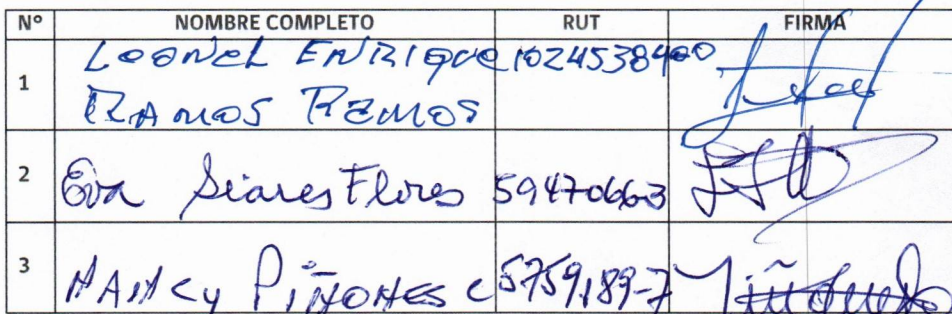 N° NOMBRE COMPLETO RUT FIRMA
1 LEONEL ENRIQUE
RAMOS RAMOS
2 Eva Siares Flores
3 NANCY PIÑONES C 5759.189-7